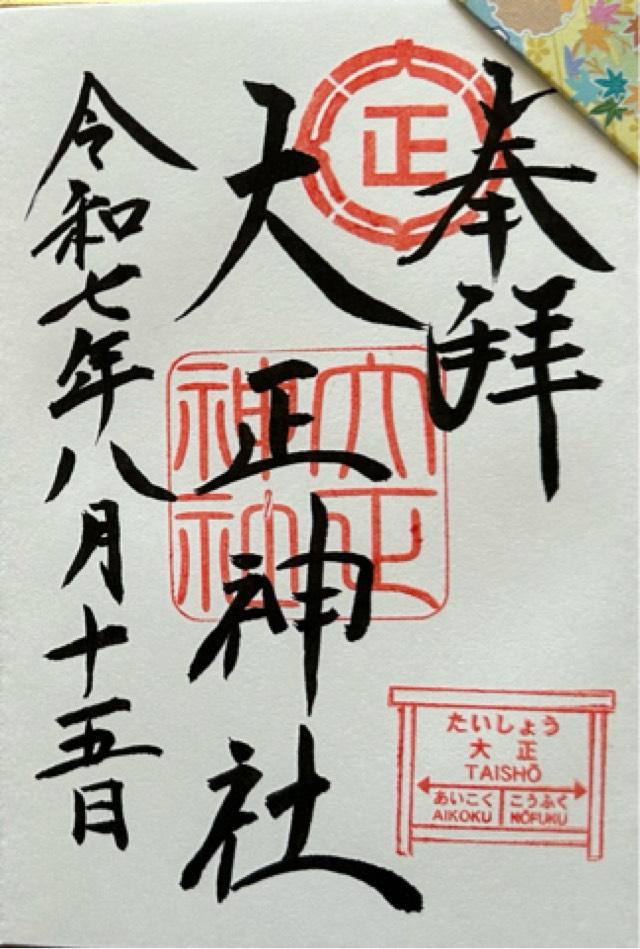 奉拝
正
大正神社
大正
神社
令和七年八月十五日
たいしょう
大正
TAISHŌ
あいこく こうふく
AIKOKU KŌFUKU